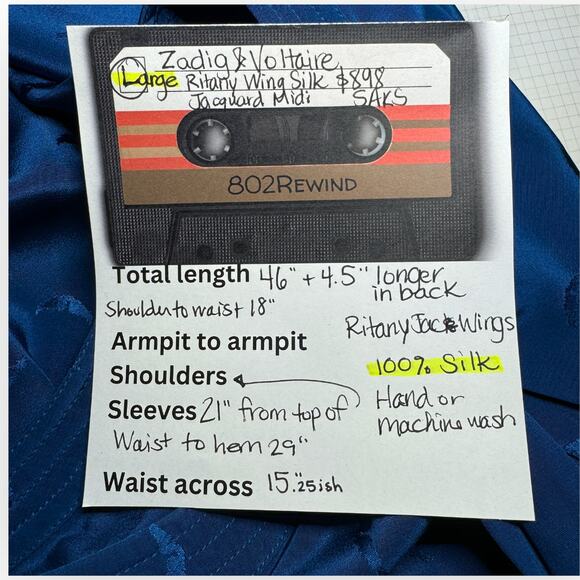 Zadig & Voltaire
Large Ritany Wing Silk $898
Jacquard Midi SAKS
802REWIND
Total length 46" + 4.5" longer
in back
Shoulder to waist 18"
Ritany Jac Wings
Armpit to armpit
100% Silk
Shoulders
Hand or
machine wash
Sleeves 21" from top of
Waist to hem 29"
Waist across 15.25"ish